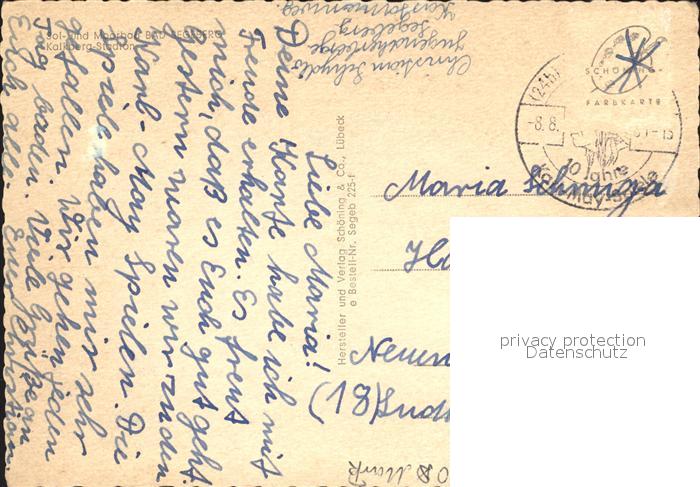 Sol- und Moorbad BAD SEGEBERG
Kalkberg-Stadion
Christian
Jugendherberge
Segeberg
Liebe Maria!
Deine Karte habe ich mit
Freude erhalten. Es freut
mich, daß es Euch gut geht.
Gestern waren wir zu den
Karl-May Spielen. Die
Spiele haben mir sehr
gefallen. Wir gehen jeden
Tag baden. Viele Grüße an
Euch alle. Euer Christian
Hersteller und Verlag Schöning & Co., Lübeck
e Bestell-Nr. Segeb 225-f
SCHÖNING-
FARBKARTE
(24b)
-8.8.
61-15
10 Jahre
Karl-May-Spiele
Maria
Neuen
(18)
Mark
privacy protection
Datenschutz